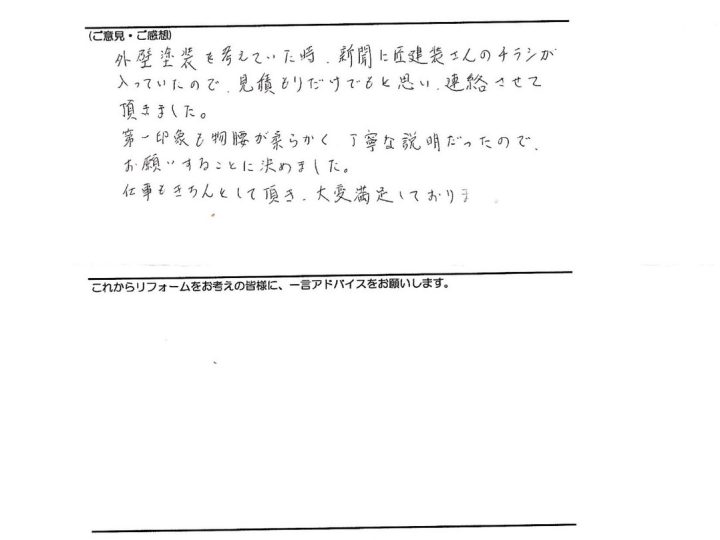 (ご意見・ご感想)
外壁塗装を考えていた時、新聞に匠建装さんのチラシが
入っていたので、見積もりだけでもと思い、連絡させて
頂きました。
第一印象も物腰が柔らかく、丁寧な説明だったので、
お願いすることに決めました。
仕事もきちんとして頂き、大変満足しておりま
これからリフォームをお考えの皆様に、一言アドバイスをお願いします。